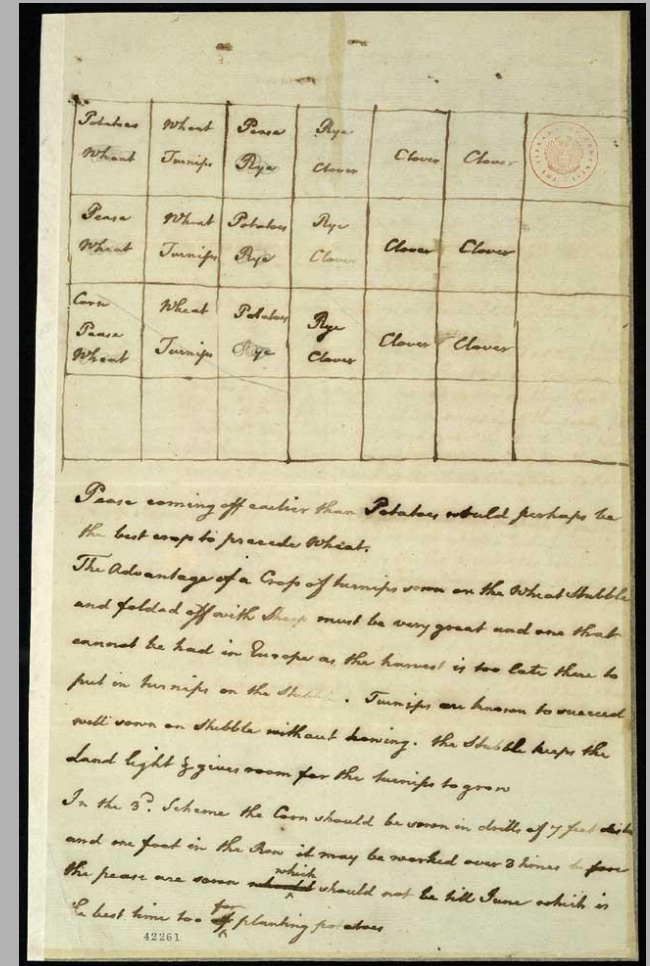 Potatoes Wheat Pease Rye Clover Clover
Wheat Turnips Rye Clover
Pease Wheat Potatoes Rye Clover Clover
Wheat Turnips Rye Clover
Corn Wheat Potatoes Rye Clover Clover
Pease
Wheat Turnips Rye Clover
Pease coming off earlier than Potatoes would perhaps be
the best crop to precede Wheat.
The Advantage of a Crop of turnips sown on the Wheat Stubble
and folded off with Sheep must be very great and one that
cannot be had in Europe as the harvest is too late there to
put in turnips on the . Turnips are known to succeed
well sown on Stubble without howing. the Stubble keeps the
Land light & gives room for the turnips to grow
In the 3d. Scheme the Corn should be sown in drills of 7 feet
and one foot in the Row it may be worked over 3 times before
which
the pease are sown should not be till June which is
for
best time too planting potatoes
42261